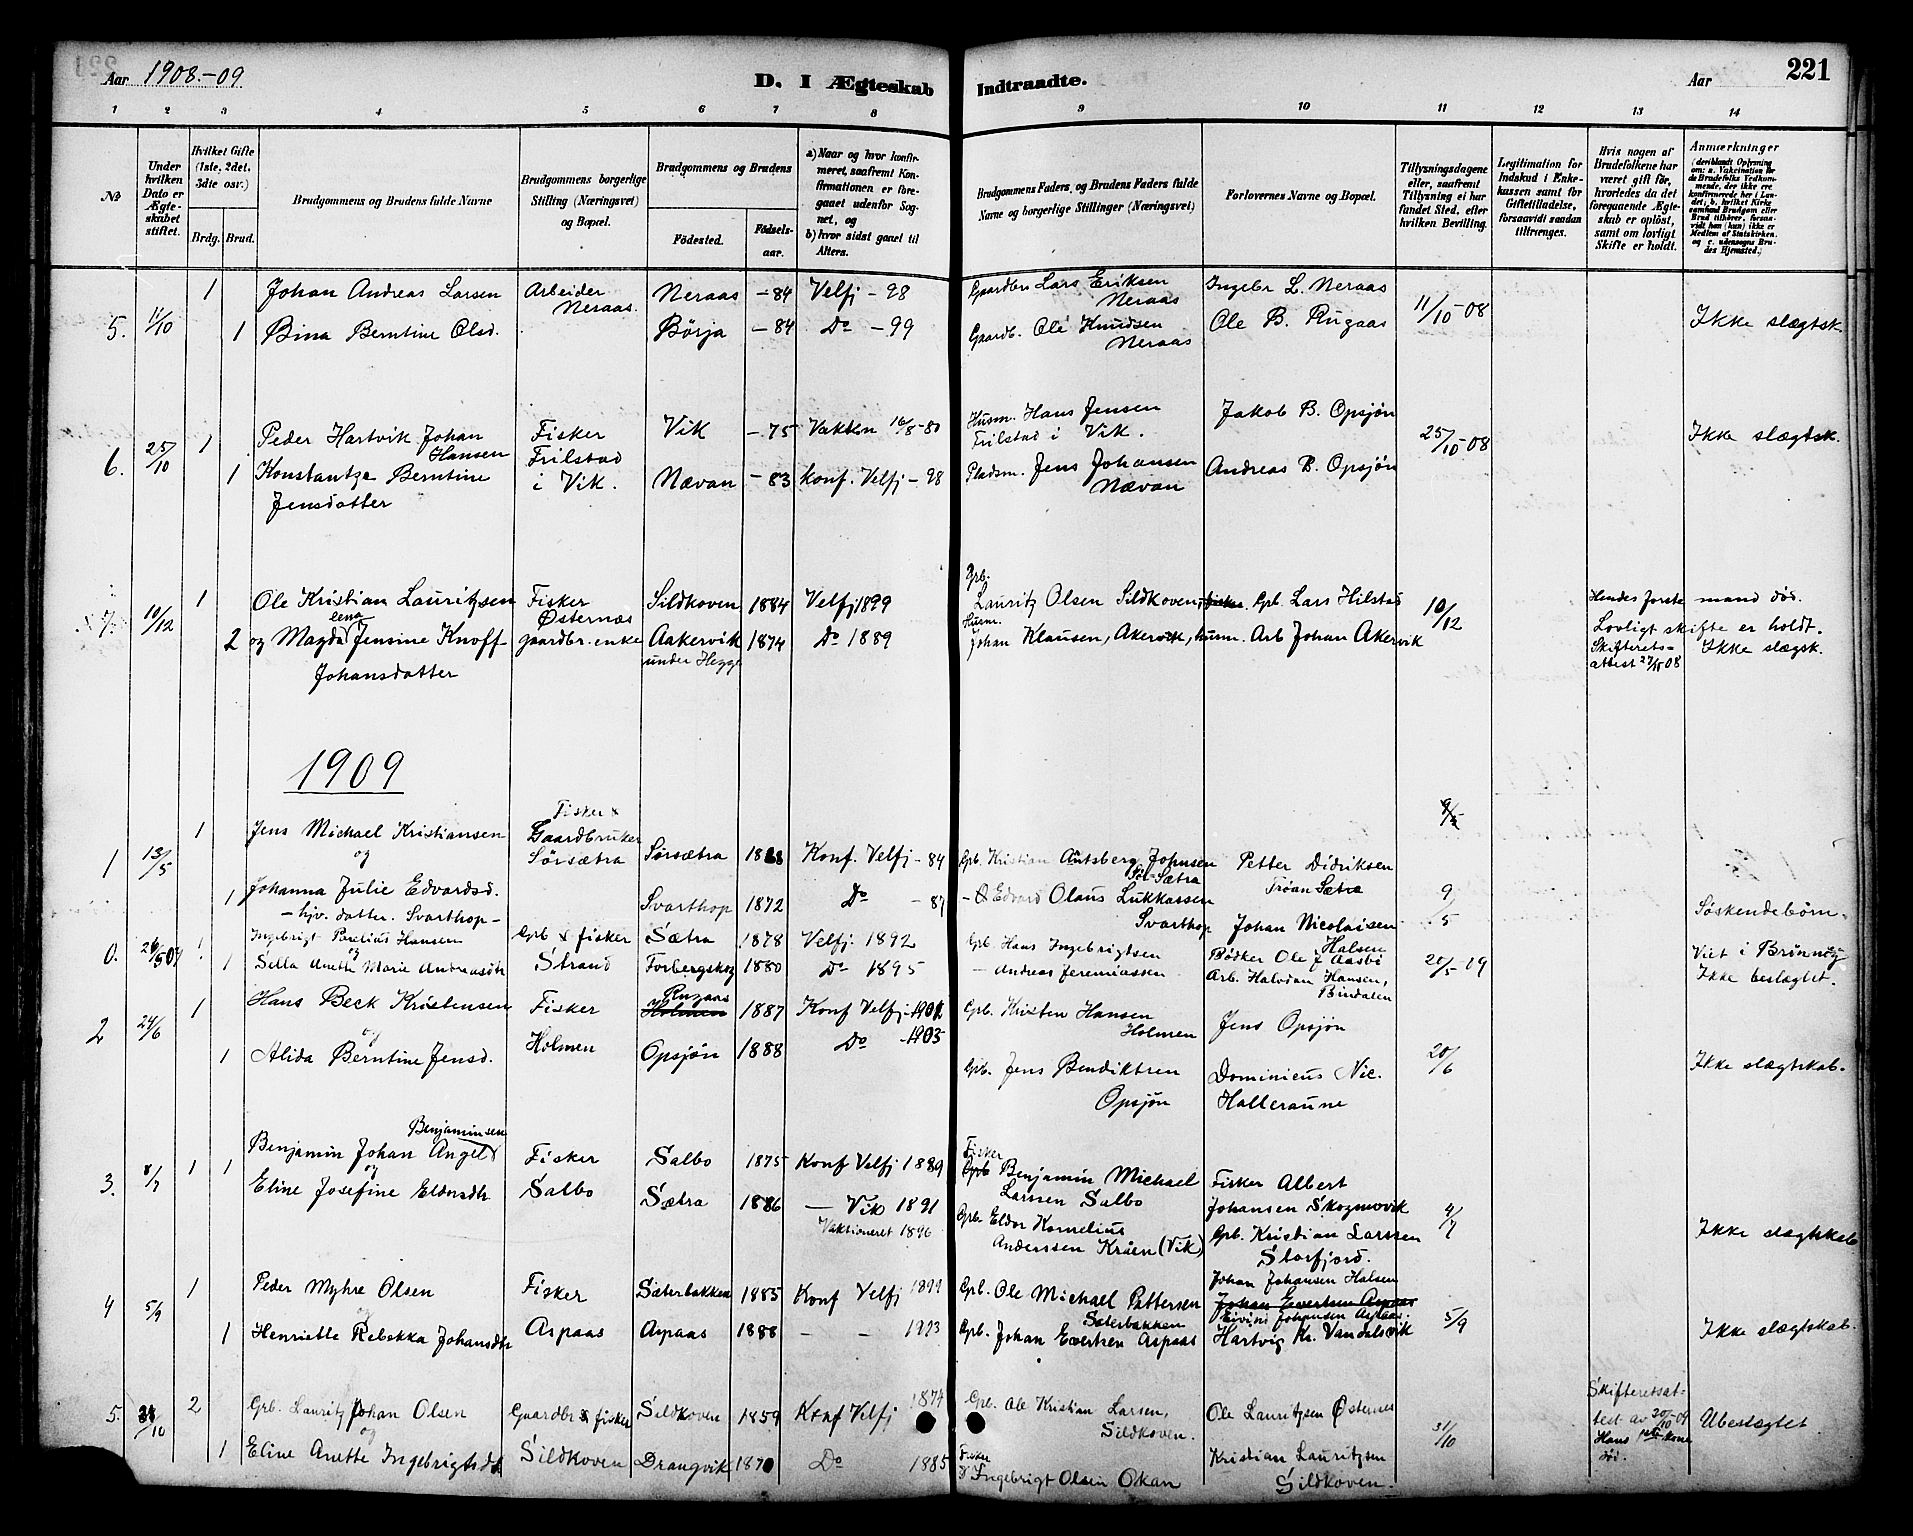 Aar 1908.-09
D. I Ægteskab Indtraadte.
Aar
221
1 2 3 4 5 6 7 8 9 10 11 12 13 14
No
Under hvilken Dato er Ægteskabet stiftet.
Hvilket Gifte (1ste, 2det, 3die osv.)
Brdg. Brud.
Brudgommens og Brudens fulde Navne
Brudgommens borgerlige Stilling (Næringsvei) og Bopæl.
Brudgommens og Brudens
Fødested. Fødselsaar.
a) Naar og hvor konfirmeret, saafremt Konfirmationen er foregaaet udenfor Sognet, og
b) hvor sidst gaaet til Alters.
Brudgommens Faders, og Brudens Faders fulde Navne og borgerlige Stillinger (Næringsvei)
Forlovernes Navne og Bopæl.
Tillysningsdagene eller, saafremt Tillysning ei har fundet Sted, efter hvilken Bevilling.
Legitimation for Indskud i Enkekassen samt for Giftetilladelse, forsaavidt saadan tiltrænges.
Hvis nogen af Brudefolkene har været gift før, hvorledes da det foregaaende Ægteskab er opløst, samt om lovligt Skifte er holdt.
Anmærkninger
5. 11/10 1 Johan Andreas Larsen Arbeider Neraas. Neraas -84 Velfj -98 Gaardbr Lars Eriksen Neraas Ingebr L. Neraas 11/10-08
1 Bina Berntine Olsd. Børja -84 Do -99 Gaardb. Ole Knudsen Neraas Ole B. Rugaas Ikke slægtsk.
6. 25/10 1 Peder Hartvik Johan Hansen Fisker Trilstad i Vik. Vik -75 Husm. Hans Jensen Trilstad i Vik. Jakob B. Opsjøn 25/10-08 Ikke slægtsk.
1 Konstantze Berntine Jensdatter Nævan -83 Konf. Velfj -98 Pladsm. Jens Johansen Nævan Andreas B. Opsjøn
7. 10/12 1 Ole Kristian Lauritzsen Fisker Østernæs Sildkoven 1884 Velfj 1899 Grb. Lauritz Olsen Sildkoven, Gb. Lars Hilstad 10/12 Hendes første mand død.
2 og Magdalena Jensine Knoff Johansdatter gaardbr. enke Aakervik under Hegge 1874 Do 1889 Husm. Johan Klausen, Akervik, husm. Arb Johan Akervik Lovligt skifte er holdt. Skifteretsattest 27/11 08 Ikke slægsk.
1909
1 13/5 1 Jens Michael Kristiansen Fisker & Gaardbruker Sørsætra Sørsætra Konf. Velfj -84 Gb. Kristian Antsberg Johnsen Sør-Sætra Petter Didriksen Troan Sætra 9/5
og
1 Johanna Julie Edvardsd. - hjv. datter. Svarthop - Svarthop 1872 Do -87 Edvard Olaus Lukkassen Svarthop Johan Nicolaisen Halsen 9/5 Søskendebørn.
0. 1 Ingebrigt Parelius Hansen Gb & fisker Sætra 1878 Velfj. 1892 Gb. Hans Ingebrigtsen Bødker Ole J Aasbø 20/5-09 Viet i Brönnöy
og
1 Silla Anette Marie Andreasdtr Strand Forbergskog 1880 Do 1895 - Andreas Jeremiassen Arb. Halvdan Hansen, Bindalen Ikke beslægtet.
2 24/6 1 Hans Beck Kristensen Fisker Holmen Rugaas Holmen 1887 Konf Velfj -1901 Gb. Kristen Hansen Holmen Jens Opsjøn
og
1 Alida Berntine Jensd. Opsjøn 1888 Do -1903 Gb. Jens Bendiktsen Opsjøn Dominicus Nic. Halleraune 20/6 Ikke slægtskab.
3. 8/7 1 Benjamin Johan Angel Benjaminsen Fisker Salbo Salbo 1875 Konf Velfj 1889 Fisker Benjamin Michael Larssen Salbo Fisker Albert Johansen Skogmovik
og
1 Eline Josefine Eldorsdtr Sætra 1886 - Vik 1891 Vaktioneret 1896 Gb. Eldor Kornelius Anderssen Kråen (Vik) Gb. Kristian Larssen Storfjord. 4/7 Ikke slægtskab
4 5/9 1 Peder Myhre Olsen Fisker Aspaas Sæterbakken 1885 Konf Velfj 1899 Gb. Ole Michael Pettersen Sæterbakken Johan Johansen Halsen Johan Evertsen Aspaas Eivind Johansen Aspaas 5/9
og
1 Henriette Rebekka Johansdtr Aspaas 1888 - - Gb. Johan Evertsen Aspaas Hartvig Kr. Vandalsvik Ikke slægtskab.
5. 31/10 2 Grb. Lauritz Johan Olsen Gaardbr & fisker Sildkoven Sildkoven 1859 Konf Velfj 1874 Gb. Ole Kristian Larsen, Sildkoven. Ole Lauritzsen Østernes 31/10 Skifteretsattest av 20/10-09 Hans 1ste kone død. Ubeslægtet
og
1 Eline Anette Ingebrigtsdtr Drangvik Do 1885 Fisker Ingebrigt Olsen Okan Kristian Lauritzsen Sildkoven.